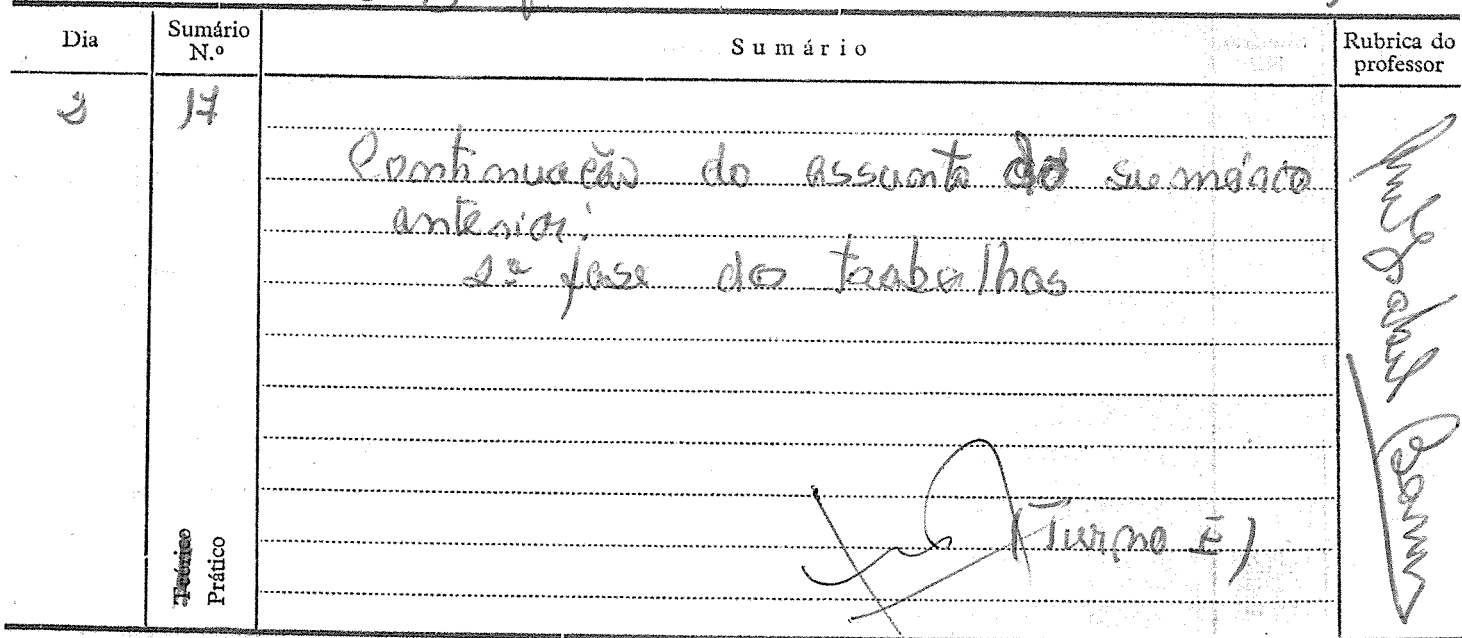 Dia
Sumário
N.º
Sumário
Rubrica do
professor
17
Continuação do assunto do sumário
anterior:
fase do trabalhos
(Turno E)
Teórico
Prático